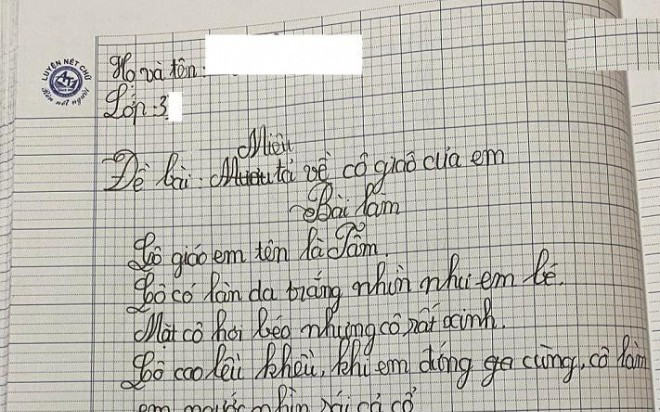 LUYỆN NÉT CHỮ
Rèn nết người
Họ và tên:
Lớp: 3
Miêu
Đề bài: tả về cô giáo của em
Bài làm
Cô giáo em tên là Tâm.
Cô có làn da trắng nhìn như em bé.
Mặt cô hơi béo nhưng cô rất xinh.
Cô cao lêu khêu, khi em đứng gần cùng, cô làm
em ngước nhìn cả cổ